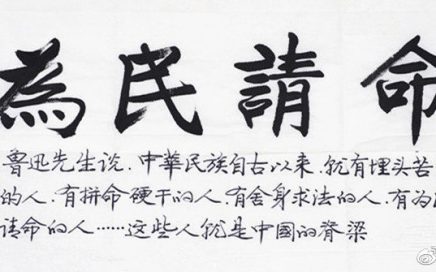 為民請命
魯迅先生说.中華民族自古以来.就有埋头苦
的人.有拼命硬干的人.有舍身求法的人.有为
请命的人……这些人就是中國的脊梁